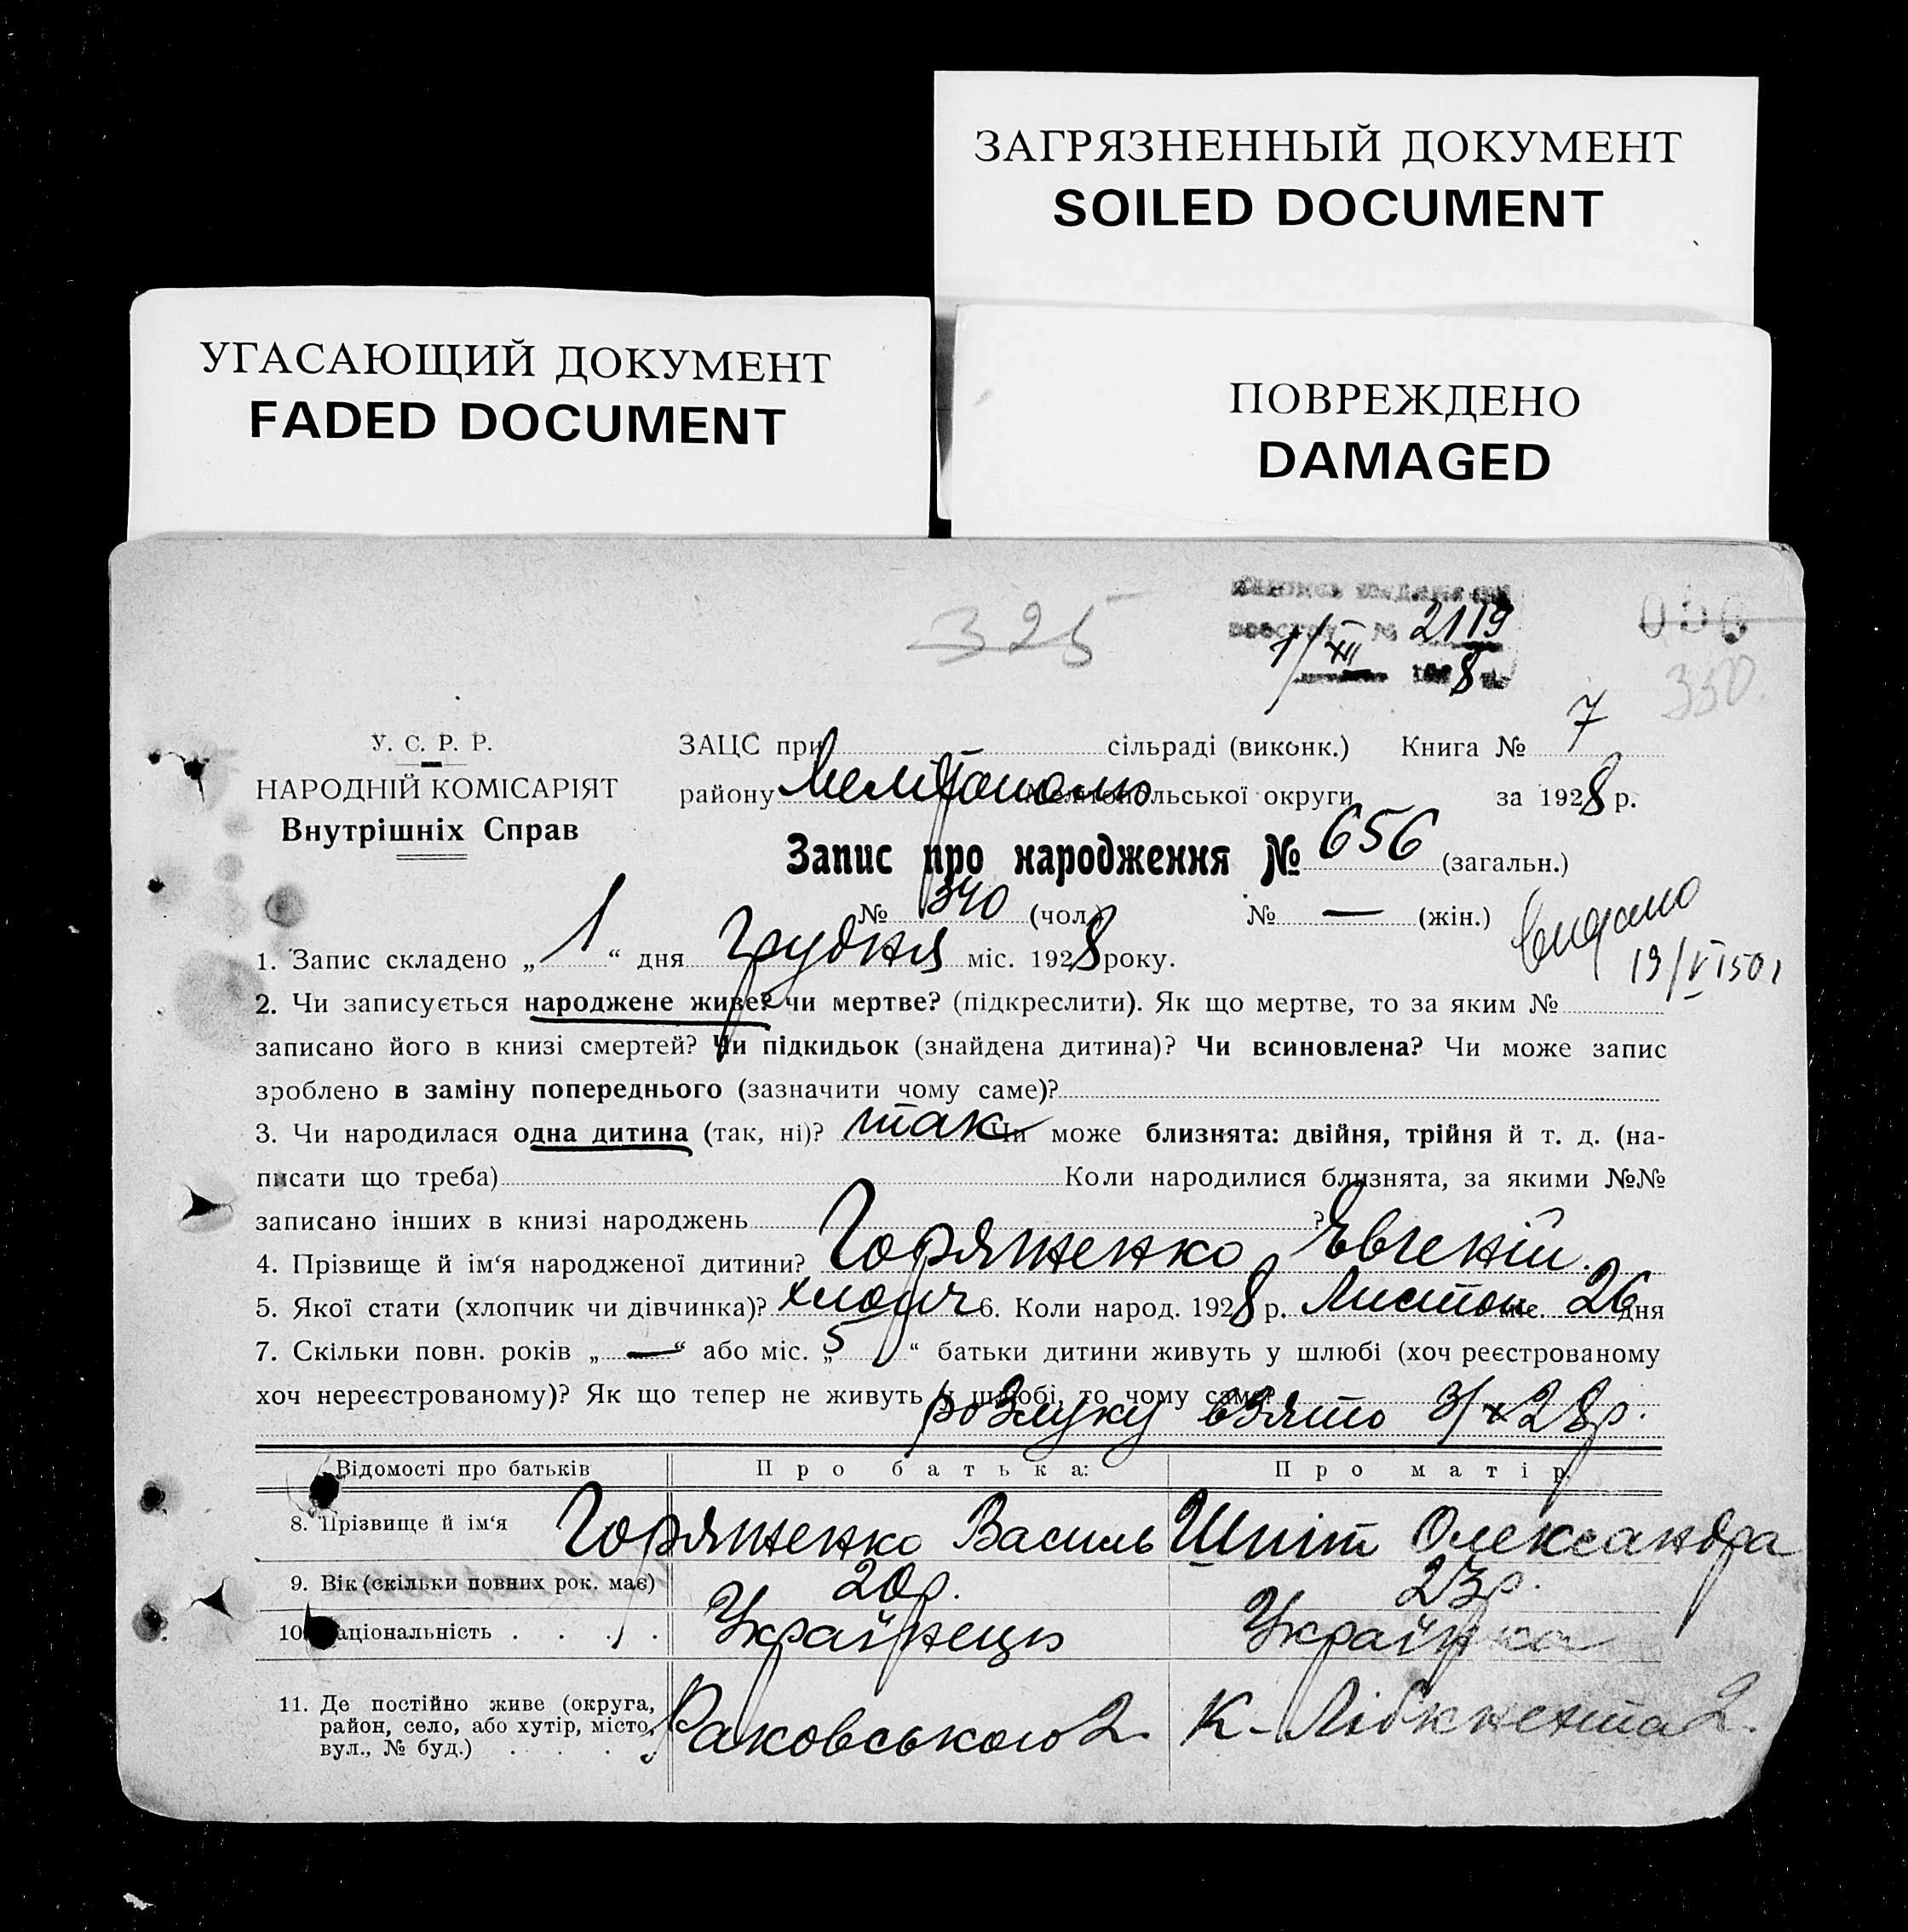 ЗАГРЯЗНЕННЫЙ ДОКУМЕНТ
SOILED DOCUMENT
УГАСАЮЩИЙ ДОКУМЕНТ
FADED DOCUMENT
ПОВРЕЖДЕНО
DAMAGED
325
№ 2119
1/XII 1928
350
У. С. Р. Р.
НАРОДНІЙ КОМІСАРІЯТ
Внутрішніх Справ
ЗАЦС при сільраді (виконк.) Книга № 7
району Мелітополю Мелітопольської округи за 1928 р.
Запис про народження № 656 (загальн.)
№ 340 (чол.) № — (жін.)
видано
19/VI 50 г
1. Запис складено „ 1 “ дня Грудня міс. 1928 року.
2. Чи записується народжене живе? чи мертве? (підкреслити). Як що мертве, то за яким №
записано його в книзі смертей? Чи підкидьок (знайдена дитина)? Чи всиновлена? Чи може запис
зроблено в заміну попереднього (зазначити чому саме)?
3. Чи народилася одна дитина (так, ні)? так Чи може близнята: двійня, трійня й т. д. (на-
писати що треба) Коли народилися близнята, за якими №№
записано інших в книзі народжень ?
4. Прізвище й ім‘я народженої дитини? Горяненко Євгеній.
5. Якої стати (хлопчик чи дівчинка)? хлопч 6. Коли народ. 1928 р. Листоп міс. 26 дня
7. Скільки повн. років „ — “ або міс. „ 5 “ батьки дитини живуть у шлюбі (хоч реєстрованому
хоч нереєстрованому)? Як що тепер не живуть у шлюбі, то чому саме?
розлуку взято 3/X 28 р.
Відомості про батьків Про батька: Про матір:
8. Прізвище й ім‘я Горяненко Василь Шпіт Олександра
9. Вік (скільки повних рок. має) 20 р. 23 р.
10. Національність . . . . Українець Українка
11. Де постійно живе (округа,
район, село, або хутір, місто,
вул., № буд.) . . . . Раковського 2 К-Лібкнехта 2.